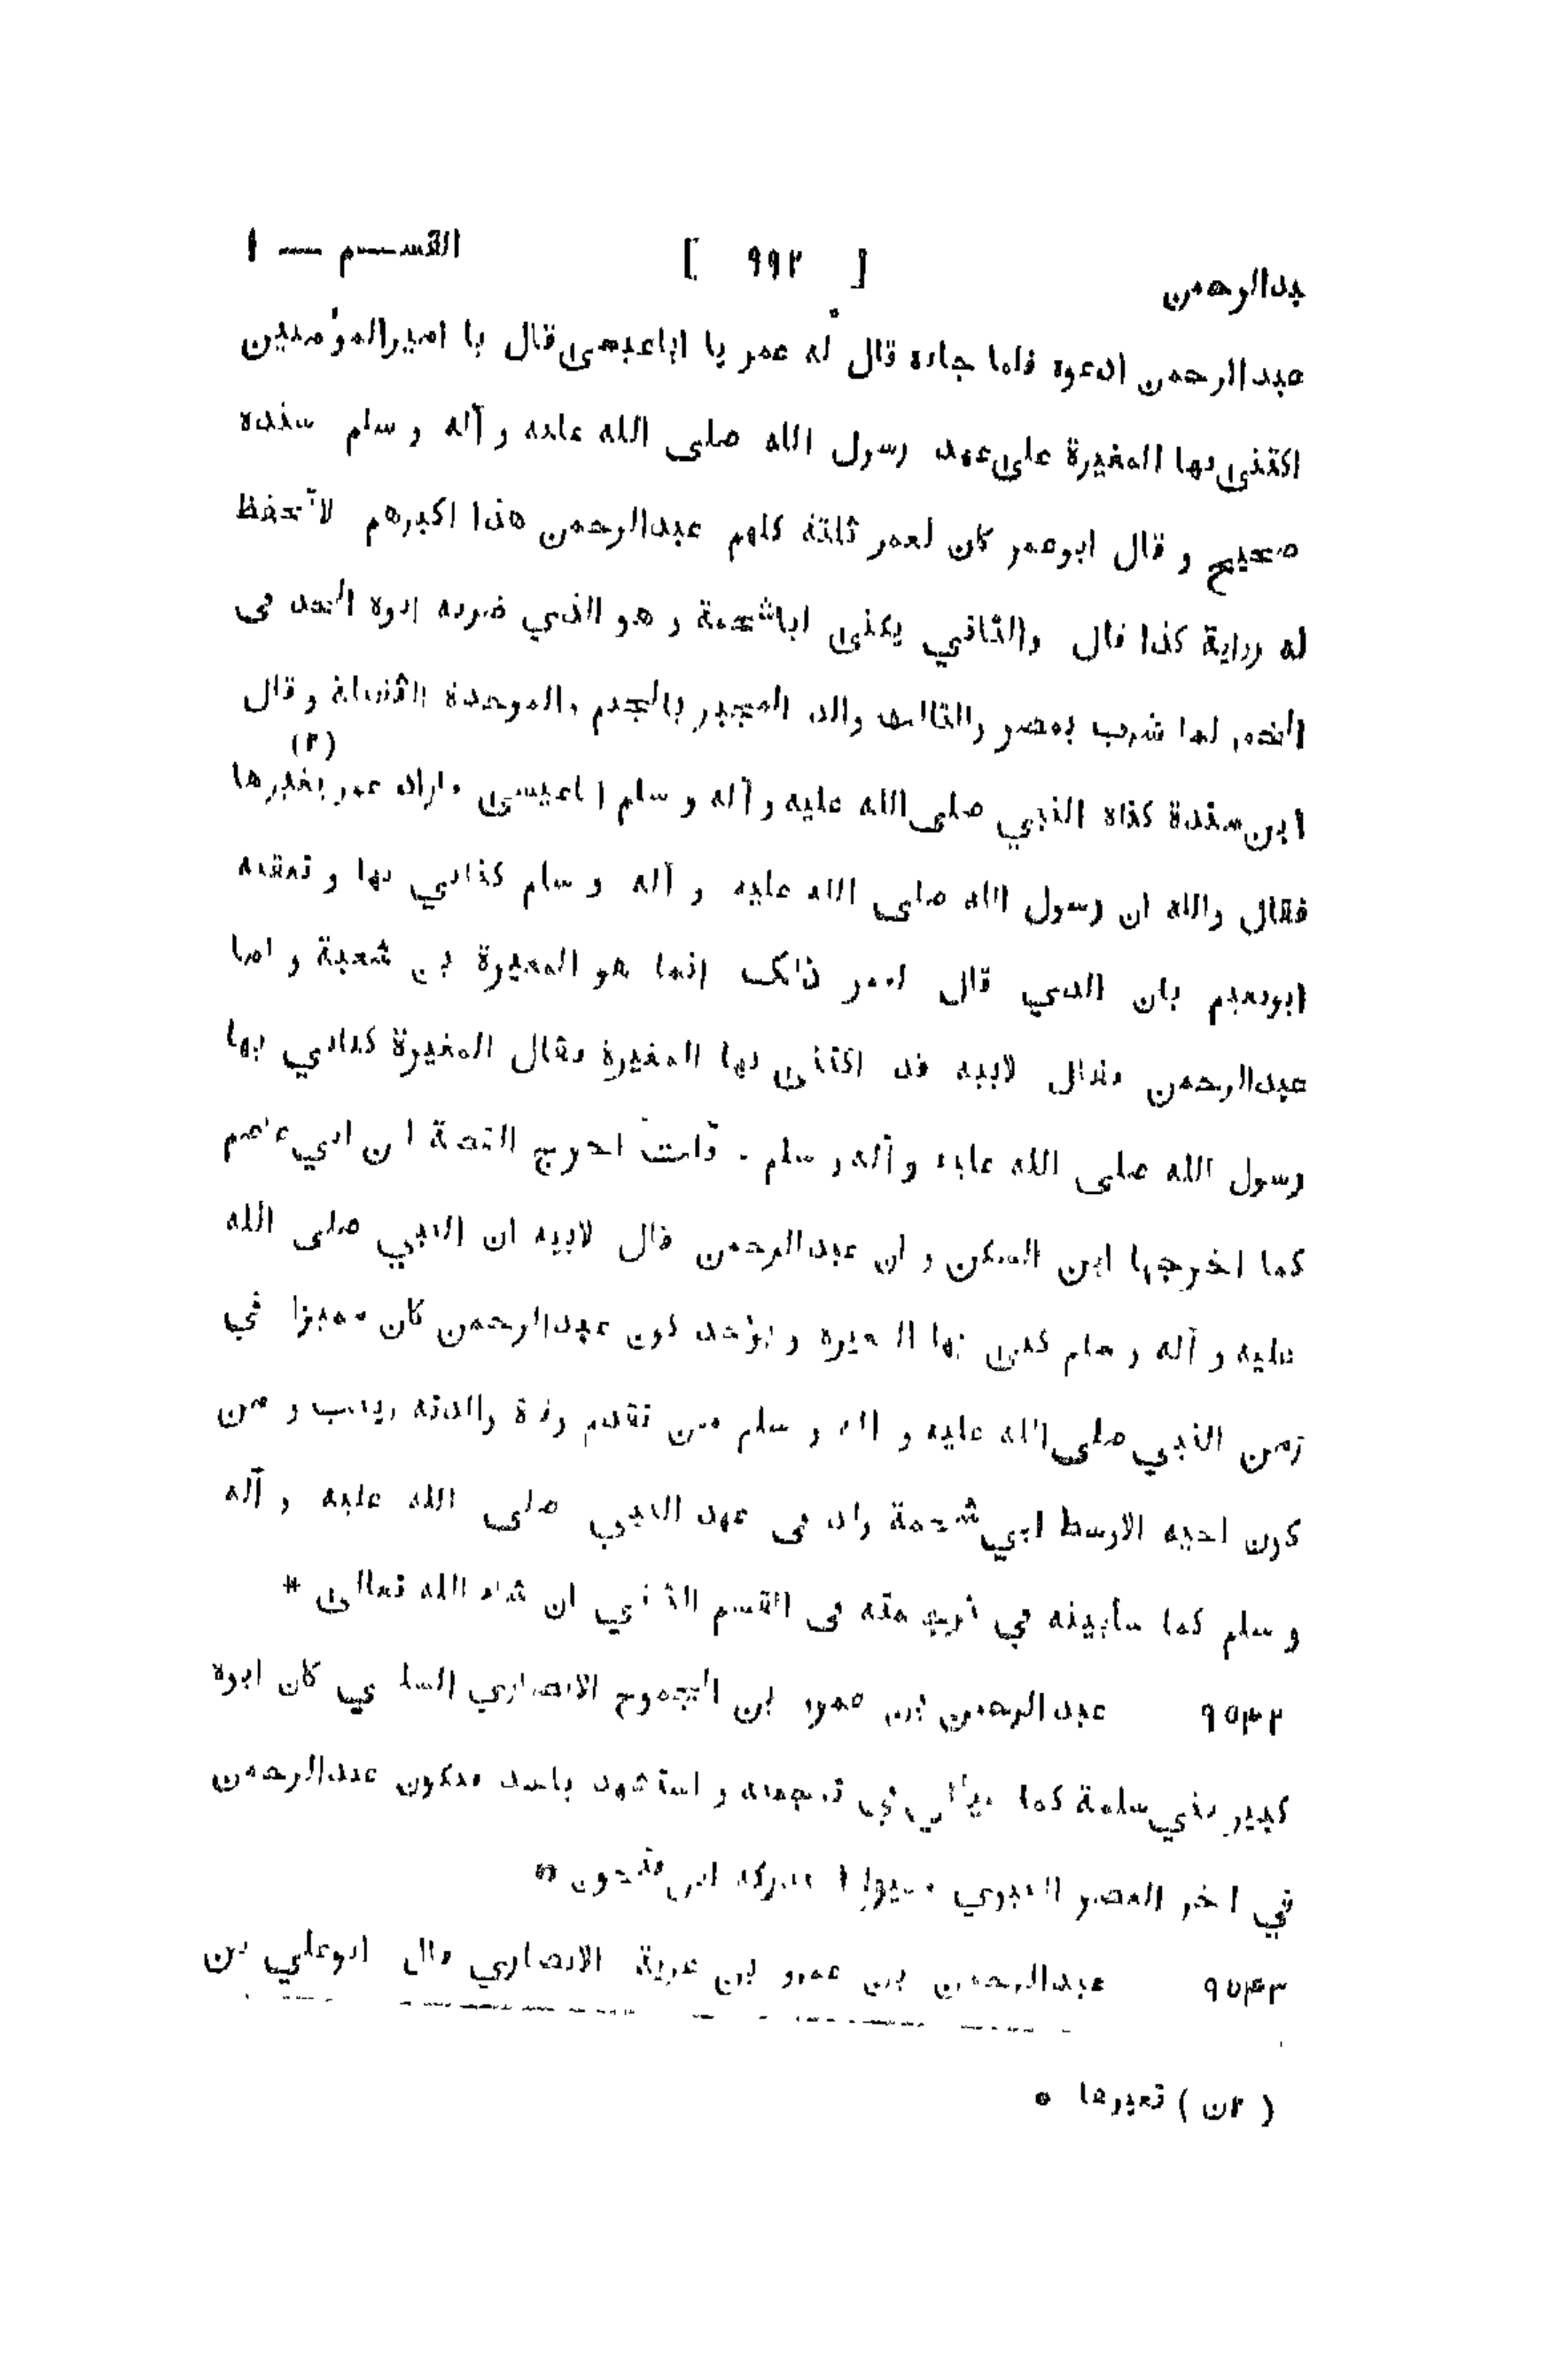 عبدالرحمن [ ٩٩٢ ] القسم — ١
عبدالرحمن ادعوه فلما جاءه قال له عمر يا اباعيسى قال يا اميرالمؤمنين
اكتنى بها المغيرة على عهد رسول الله صلى الله عليه و آله و سلم سنده
صحيح و قال ابوعمر كان لعمر ثلثة كلهم عبدالرحمن هذا اكبرهم لا تحفظ
له رواية كذا قال والثاني يكنى اباشحمة و هو الذي ضربه ابوه الحد في
الخمر لما شرب بمصر والثالث والد المجبر بالجيم والموحدة الثقيلة و قال
ابن منده كناه النبي صلى الله عليه و آله و سلم اباعيسى فاراد عمر بغيرها (٢)
فقال والله ان رسول الله صلى الله عليه و آله و سلم كناني بها و تعقبه
ابونعيم بان الذي قال لعمر ذلك انما هو المغيرة بن شعبة و اما
عبدالرحمن فقال لابيه قد اكتنى بها المغيرة فقال المغيرة كناني بها
رسول الله صلى الله عليه و آله و سلم . قلت اخرج القصة ابن ابي عاصم
كما اخرجها ابن السكن و ان عبدالرحمن قال لابيه ان النبي صلى الله
عليه و آله و سلم كنى بها المغيرة و يؤخذ كون عبدالرحمن كان مميزا في
زمن النبي صلى الله عليه و آله و سلم من تقدم وفاة والدته زينب و من
كون اخيه الاوسط ابي شحمة ولد في عهد النبي صلى الله عليه و آله
و سلم كما سأبينه في ترجمته في القسم الثاني ان شاء الله تعالى *
٩٥٤٢ عبدالرحمن بن عمرو بن الجموح الانصاري السلمي كان ابوه
كبير بني سلمة كما سيأتي في ترجمته و استشهد باحد فيكون عبدالرحمن
في اخر العصر النبوي مميزا استدركه ابن فتحون *
٩٥٤٣ عبدالرحمن بن عمرو بن غزية الانصاري قال ابوعلي بن
( ٢ن ) تعبيرها *